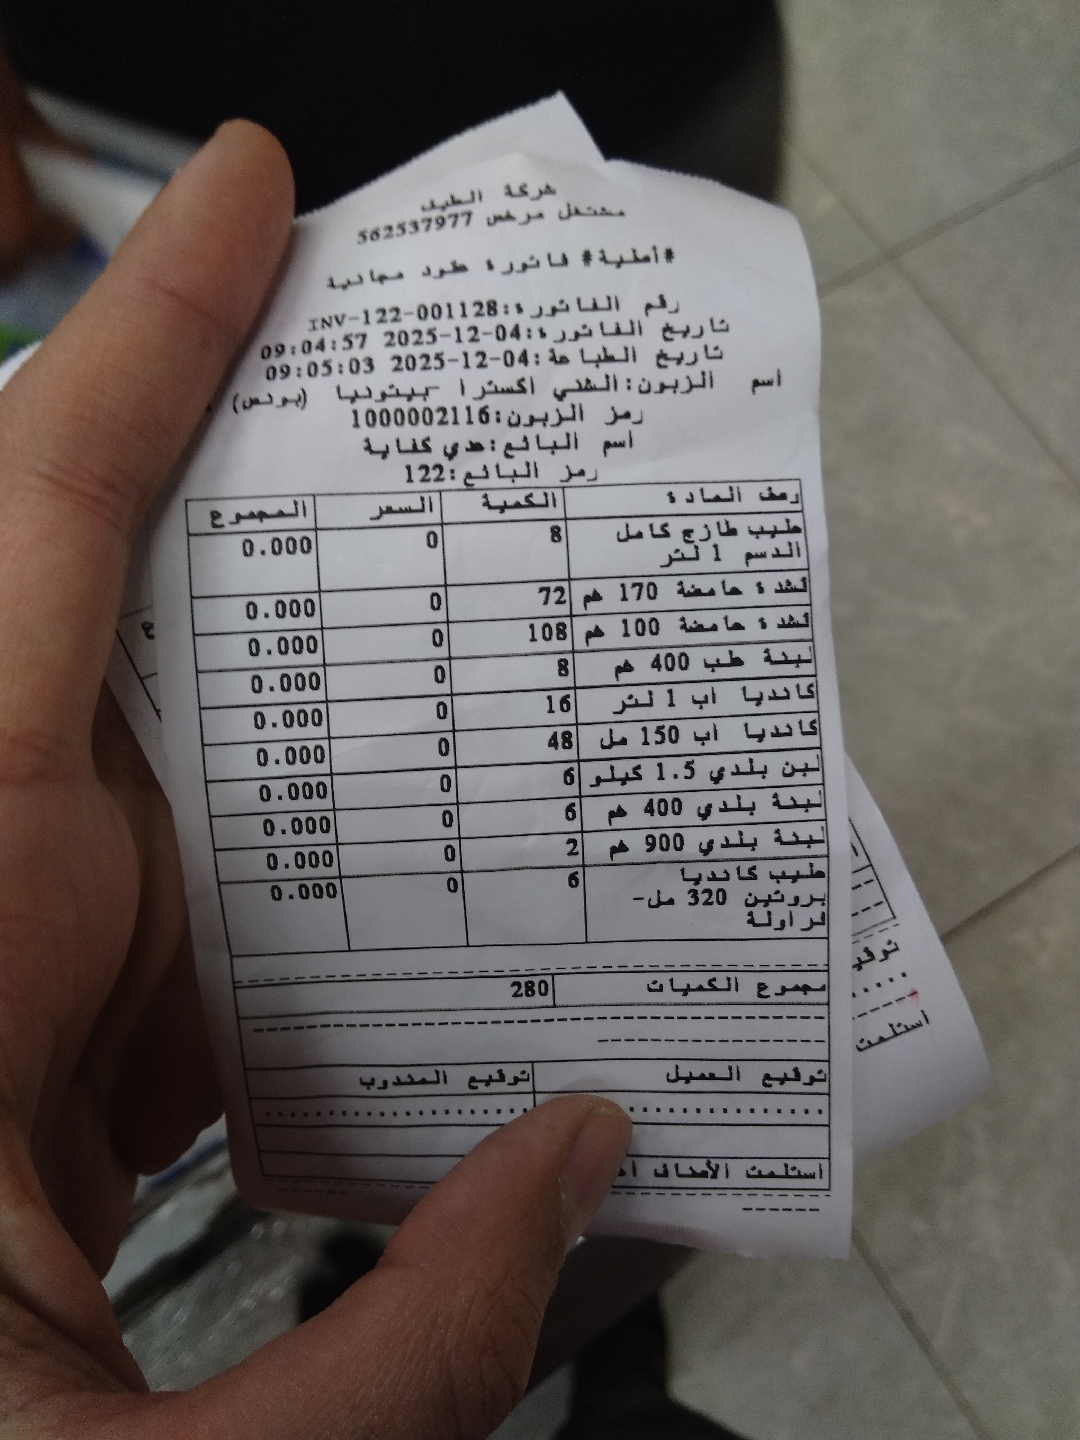 شركة الطيف
مشتغل مرخص 562537977
#أصلية# فاتورة طرود مجانية
رقم الفاتورة:INV-122-001128
تاريخ الفاتورة:2025-12-04 09:04:57
تاريخ الطباعة:2025-12-04 09:05:03
اسم الزبون:الشني اكسترا -بيتونيا (بونص) .
رمز الزبون:1000002116
اسم البائع:عدي كفاية
رمز البائع:122
وصف المادة الكمية السعر المجموع
حليب طازج كامل 8 0 0.000
الدسم 1 لتر
قشدة حامضة 170 غم 72 0 0.000
قشدة حامضة 100 غم 108 0 0.000
لبنة طب 400 غم 8 0 0.000
كانديا اب 1 لتر 16 0 0.000
كانديا اب 150 مل 48 0 0.000
لبن بلدي 1.5 كيلو 6 0 0.000
لبنة بلدي 400 غم 6 0 0.000
لبنة بلدي 900 غم 2 0 0.000
حليب كانديا 6 0 0.000
بروتين 320 مل-
فراولة
مجموع الكميات 280
توقيع العميل توقيع المندوب
استلمت الأصناف
استلمت